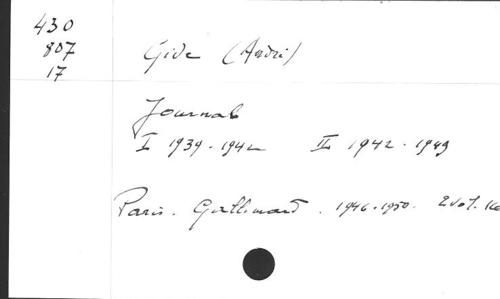 430
807
17
Gide (André)
Journal
I 1939-1942 II 1942-1949
Paris. Gallimard. 1946-1950. 2 vol.